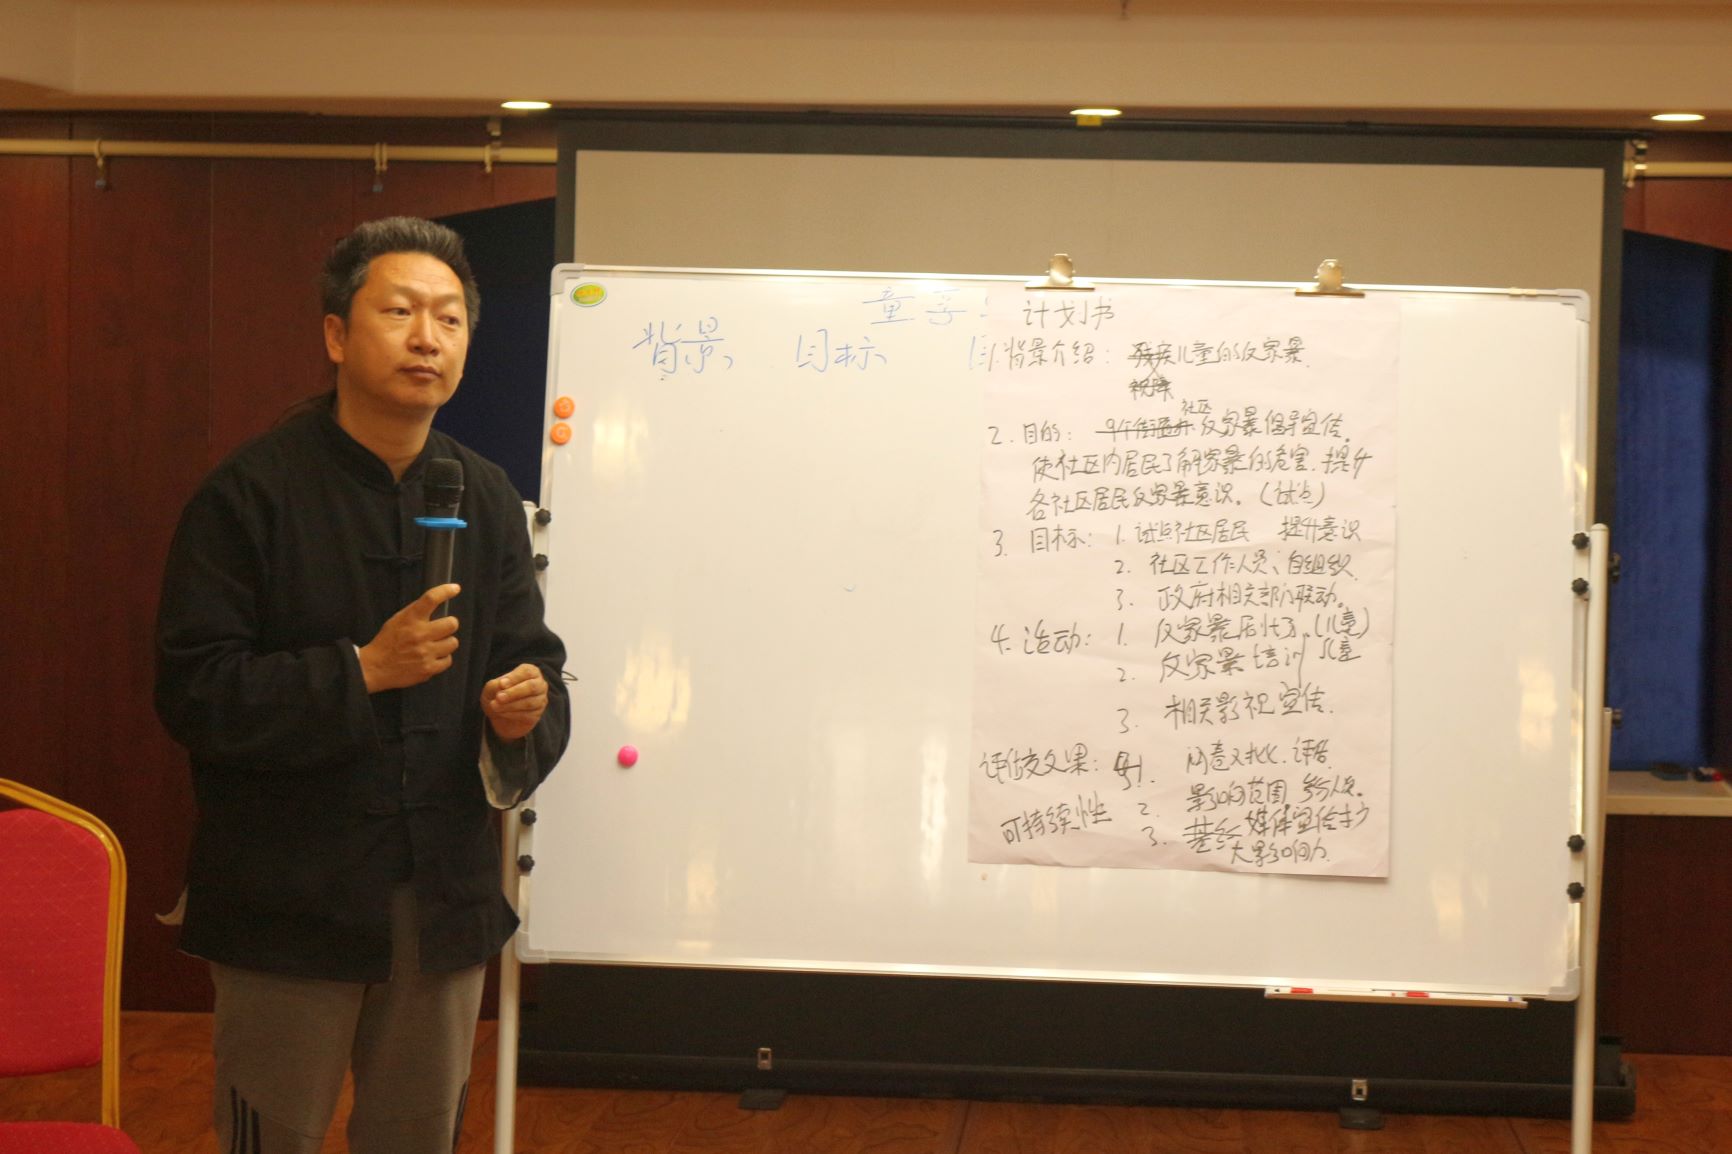 背景、 目标、
计划书
1. 背景介绍: 残疾儿童的反家暴.
视障
社区
2. 目的: 反家暴倡导宣传。
使社区内居民了解家暴的危害.提升
各社区居民反家暴意识。(试点)
3. 目标: 1. 试点社区居民 提升意识
2. 社区工作人员、自组织
3. 政府相关部门联动。
4. 活动: 1. 反家暴 (儿童)
2. 反家暴培训 儿童
3. 相关影视宣传.
评估效果: 1. 问卷对比.评估.
可持续性 2. 影响范围.参与人员。
3. 媒体宣传扩
大影响力.